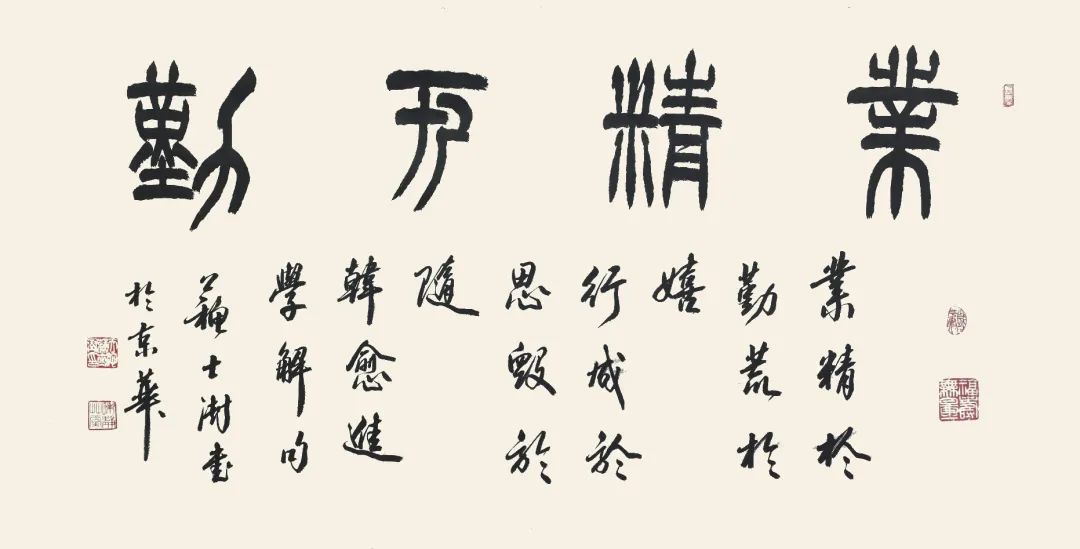 業精于勤
業精於
勤荒於
嬉
行成於
思毀於
隨
韓愈進
學解句
蘇士澍書
於京華
福壽無量